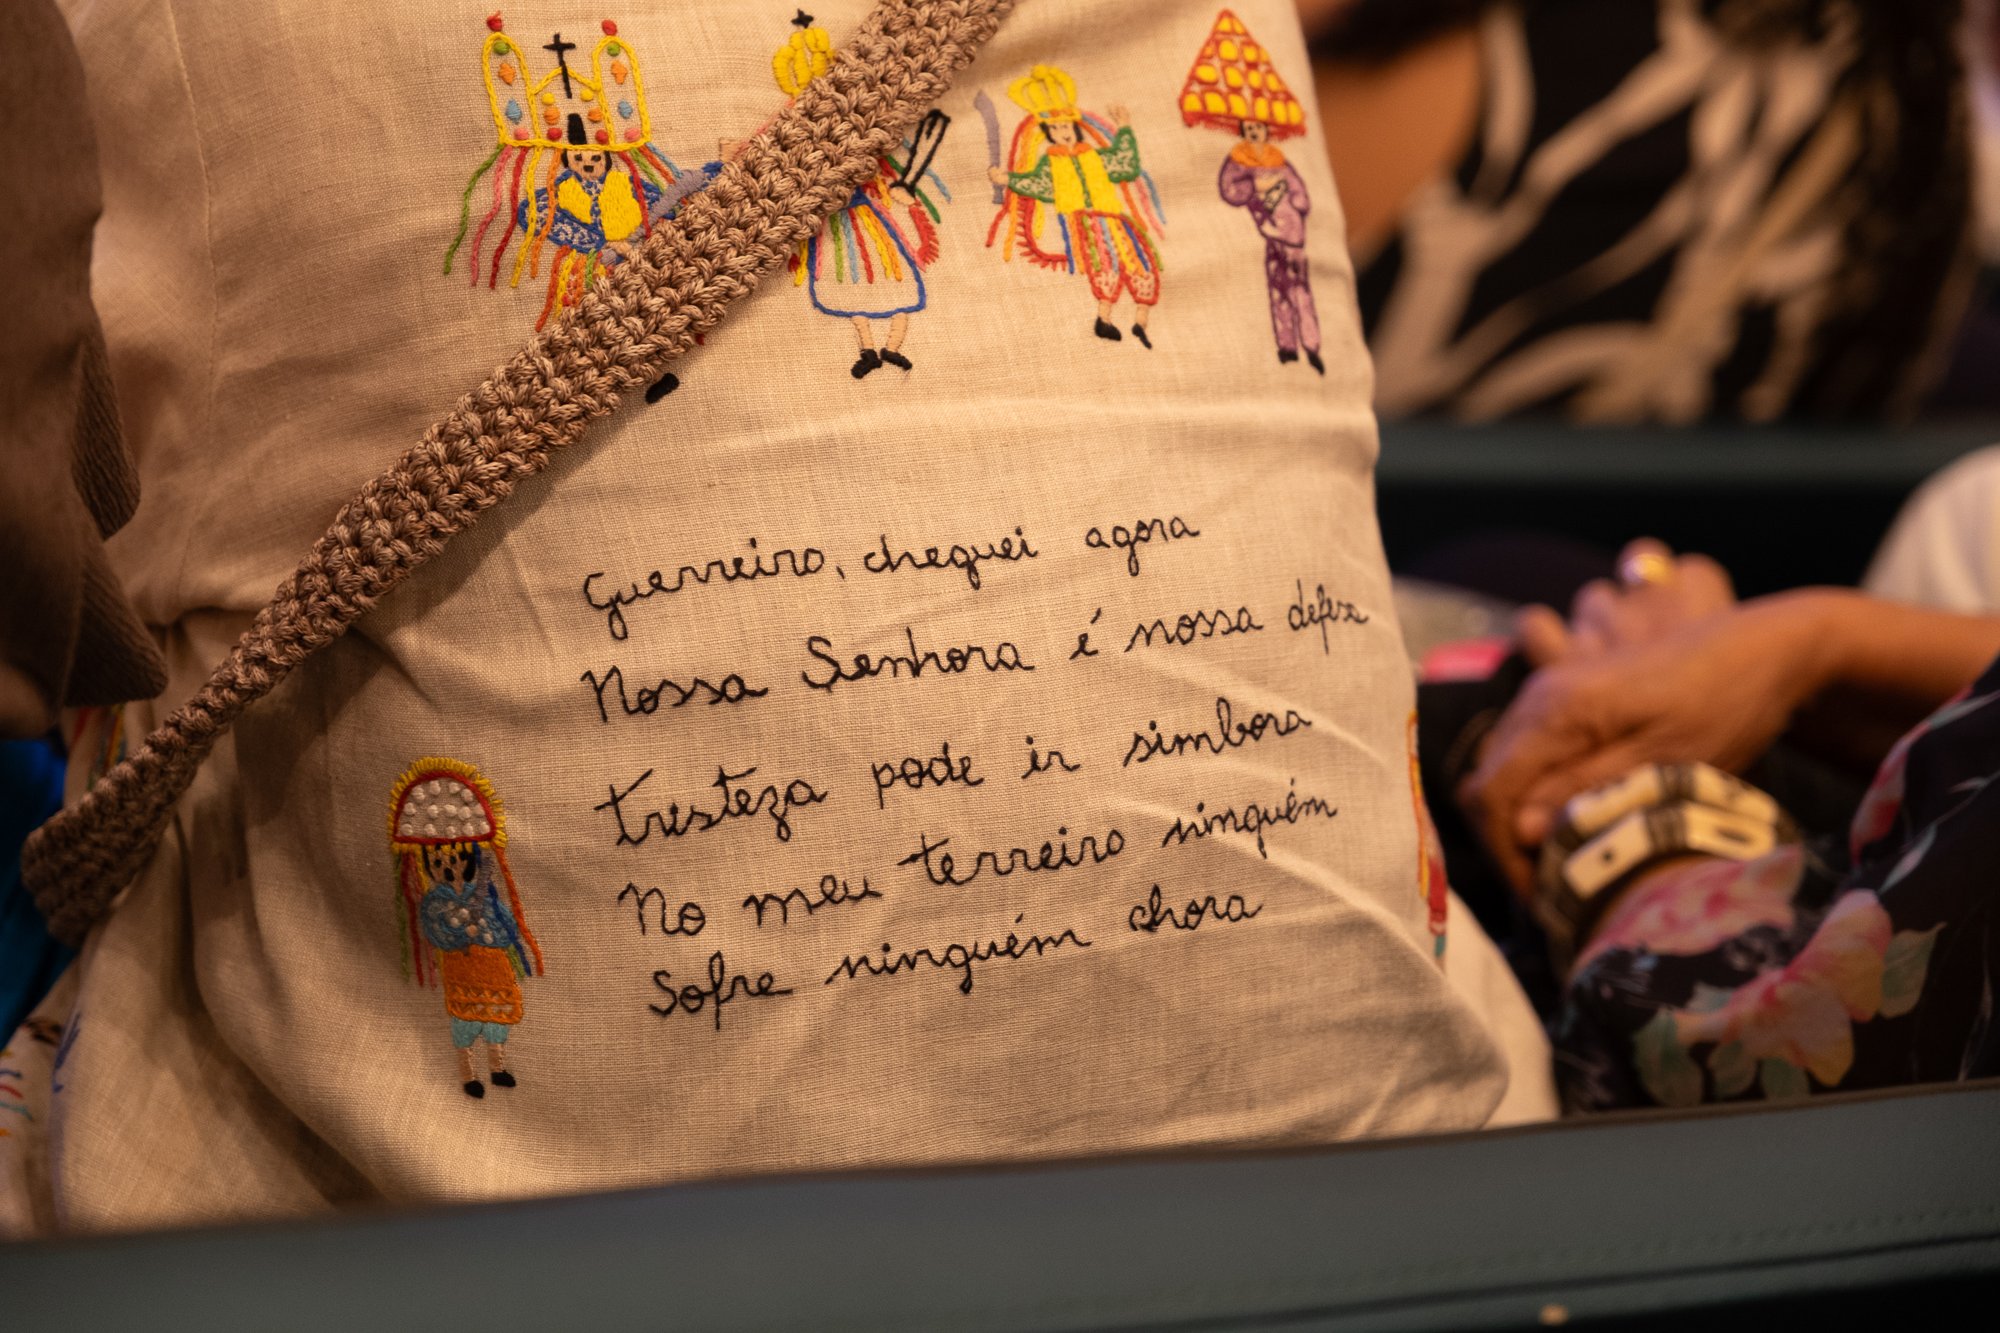 Guerreiro, cheguei agora
Nossa Senhora é nossa defeza
tresteza pode ir simbora
No meu terreiro ninguém
Sofre ninguém chora